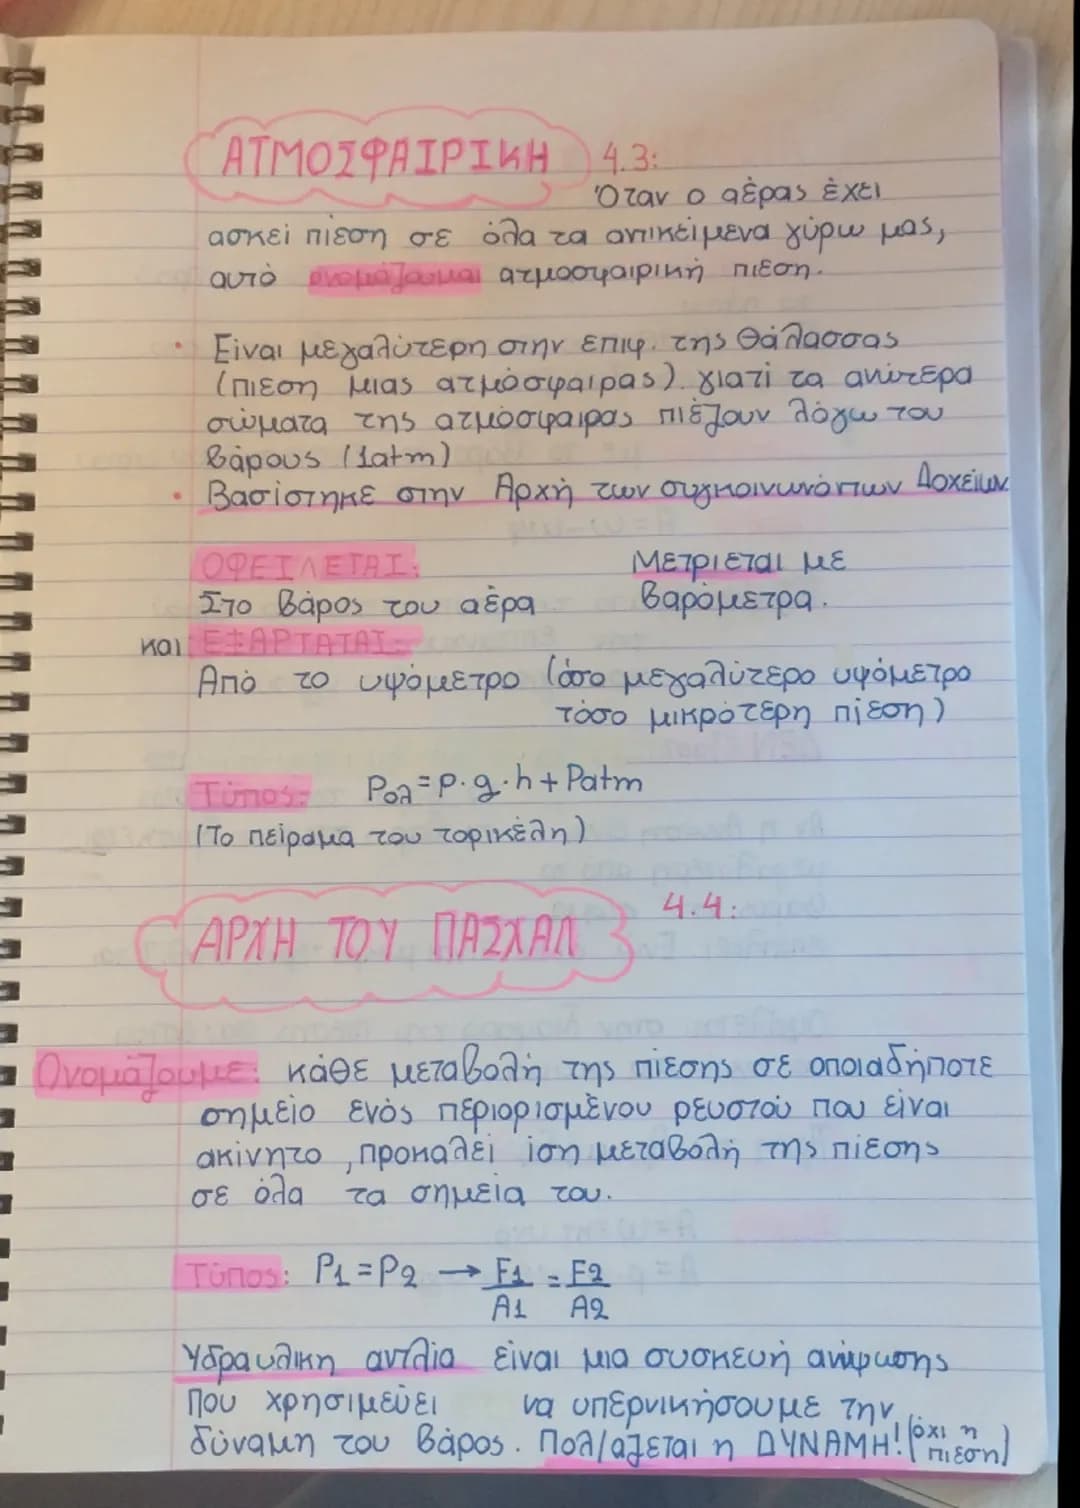 ΑΤΜΟΣΦΑΙΡΙΚΗ 4.3:
Όταν ο αέρας έχει
ασκεί πίεση σε όλα τα αντικείμενα γύρω μας,
αυτό ονομάζουμαι ατμοσφαιρική πιεση.
• Είναι μεγαλύτερη στην επιφ. της θάλασσας
(πιεση μιας ατμόσφαιρας) γιατί τα ανώτερα
σώματα της ατμόσφαιρας πιέζουν λόγω του
βάρους (1atm)
• Βασίστηκε στην Αρχή των συγκοινωνόντων Δοχείων
ΟΦΕΙΛΕΤΑΙ: Μετριεται με
Στο βάρος του αέρα βαρόμετρα.
και ΕΞΑΡΤΑΤΑΙ:
Από το υψόμετρο (όσο μεγαλύτερο υψόμετρο
τόσο μικρότερη πίεση)
Τύπος: Pολ=ρ·g·h+Patm
(Το πείραμα του τορικέλη)
ΑΡΧΗ ΤΟΥ ΠΑΣΧΑΛ 4.4:
Ονομάζουμε: κάθε μεταβολή της πίεσης σε οποιαδήποτε
σημείο ενός περιορισμένου ρευστού που είναι
ακίνητο, προκαλεί ίση μεταβολή της πίεσης
σε όλα τα σημεία του.
Τύπος: P1=P2 → F1/A1 = F2/A2
Υδραυλικη αντλία είναι μια συσκευή ανύψωσης
που χρησιμεύει να υπερνικήσουμε την
δύναμη του βάρος. Πολ/αζεται η ΔΥΝΑΜΗ! (όχι η
πιεση)